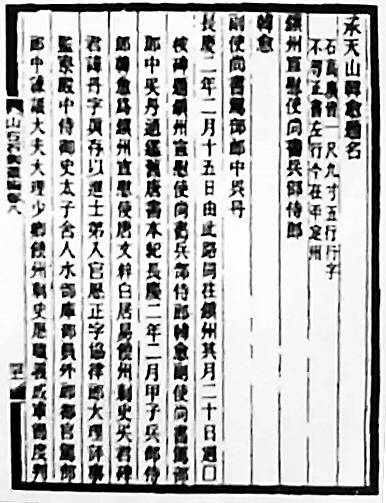 承天山韓愈題名
石高廣皆一尺九寸五行行字
不同正書左行今在平定州
鎮州宣慰使尚書兵部侍郎
韓愈
副使尚書駕部郎中吳丹
長慶二年二月十五日由此路同往鎮州其月二十日迴□
按碑題鎮州宣慰使尚書兵部侍郎韓愈副使尚書駕部
郎中吳丹通鑑舊唐書本紀長慶二年二月甲子兵部侍
郎韓愈爲鎮州宣慰使唐文粹白居易饒州刺史吳君碑
君諱丹字眞存以進士第入官歷正字協律郎大理評事
監察殿中侍御史太子舍人水部庫部員外郎都官駕部
郎中諫議大夫大理少卿饒州刺史歷職義成軍節度判
山右石刻叢編卷八